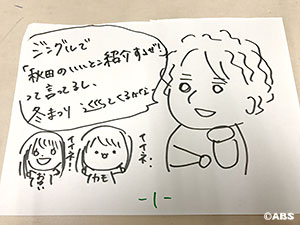 ジングルで
「秋田のいいとこ紹介すっぜ!」
って言ってるし、
冬まつり 巡ってくるかな
イイネー!
イイネ!
おば
カモ
-1-
©ABS